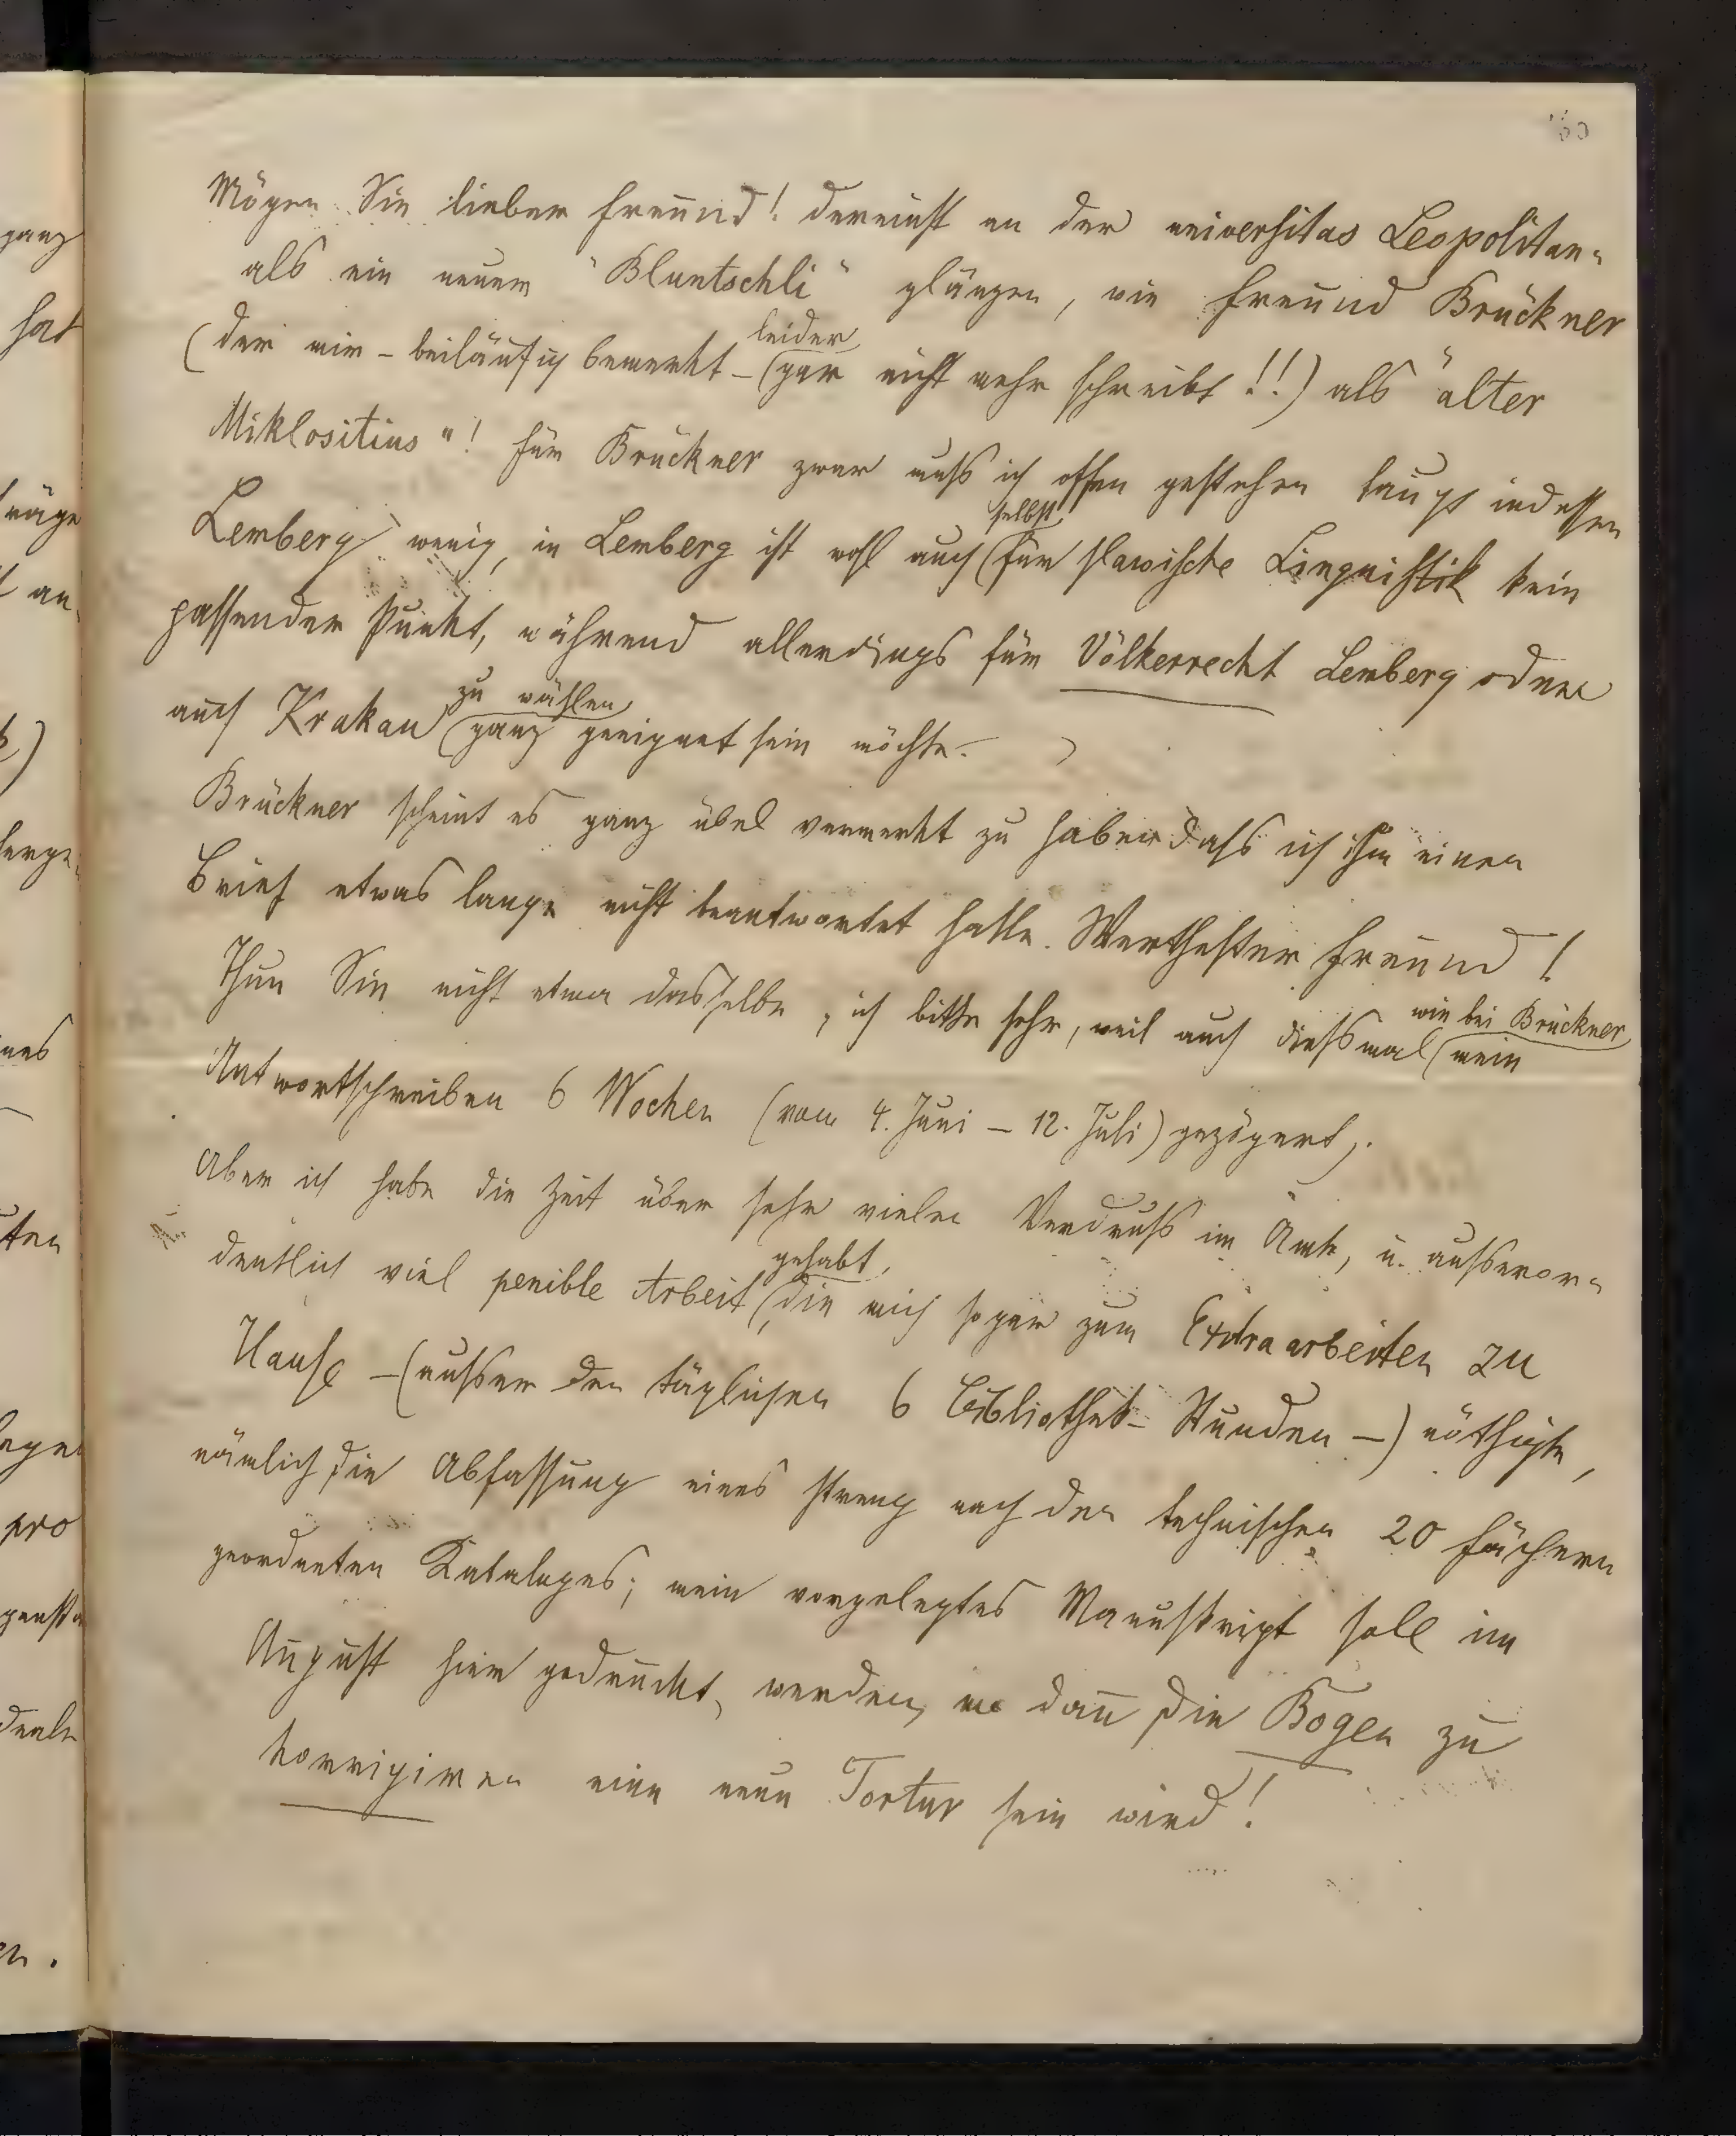 Mögen Sie lieber Freund! dereinst an der universitas Leopolitan-
als ein neuer "Bluntschli" glänzen, wie Freund Brückner
leider
(der mir – beiläufig bemerkt – (gar nicht mehr schreibt!!) als "alter
Miklositius"! Für Brückner zwar muss ich offen gestehen taugt indessen
selbst
Lemberg wenig, in Lemberg ist wohl auch (für slawische Linguistik kein
passender Punkt, während allerdings für Völkerrecht Lemberg oder
zu wählen
auch Krakau (ganz geeignet sein möchte.
Brückner scheint es ganz übel vermerkt zu haben dass ich ihm einen
Brief etwas lange nicht beantwortet hatte. Werthester Freund!
Thun Sie nicht etwa dasselbe, ich bitte sehr, weil auch diessmal (mein
wie bei Brückner
Antwortschreiben 6 Wochen (vom 4. Juni – 12. Juli) gezögert,.
Aber ich habe die Zeit über sehr vielen Verdruss im Amte, u. ausseror-
gehabt,
dentlich viel penible Arbeit, (die mich sogar zum Extraarbeiten zu
Hause – (ausser den täglichen 6 Bibliothek-Stunden –) nöthigte,
nämlich die Abfassung eines streng nach den technischen 20 Fächern
geordneten Kataloges; mein vorgelegtes Manuskript soll im
August hier gedruckt, werden, wo dan̄ die Bogen zu
korrigiren eine neue Tortur sein wird!
ganz
hat
an
pro